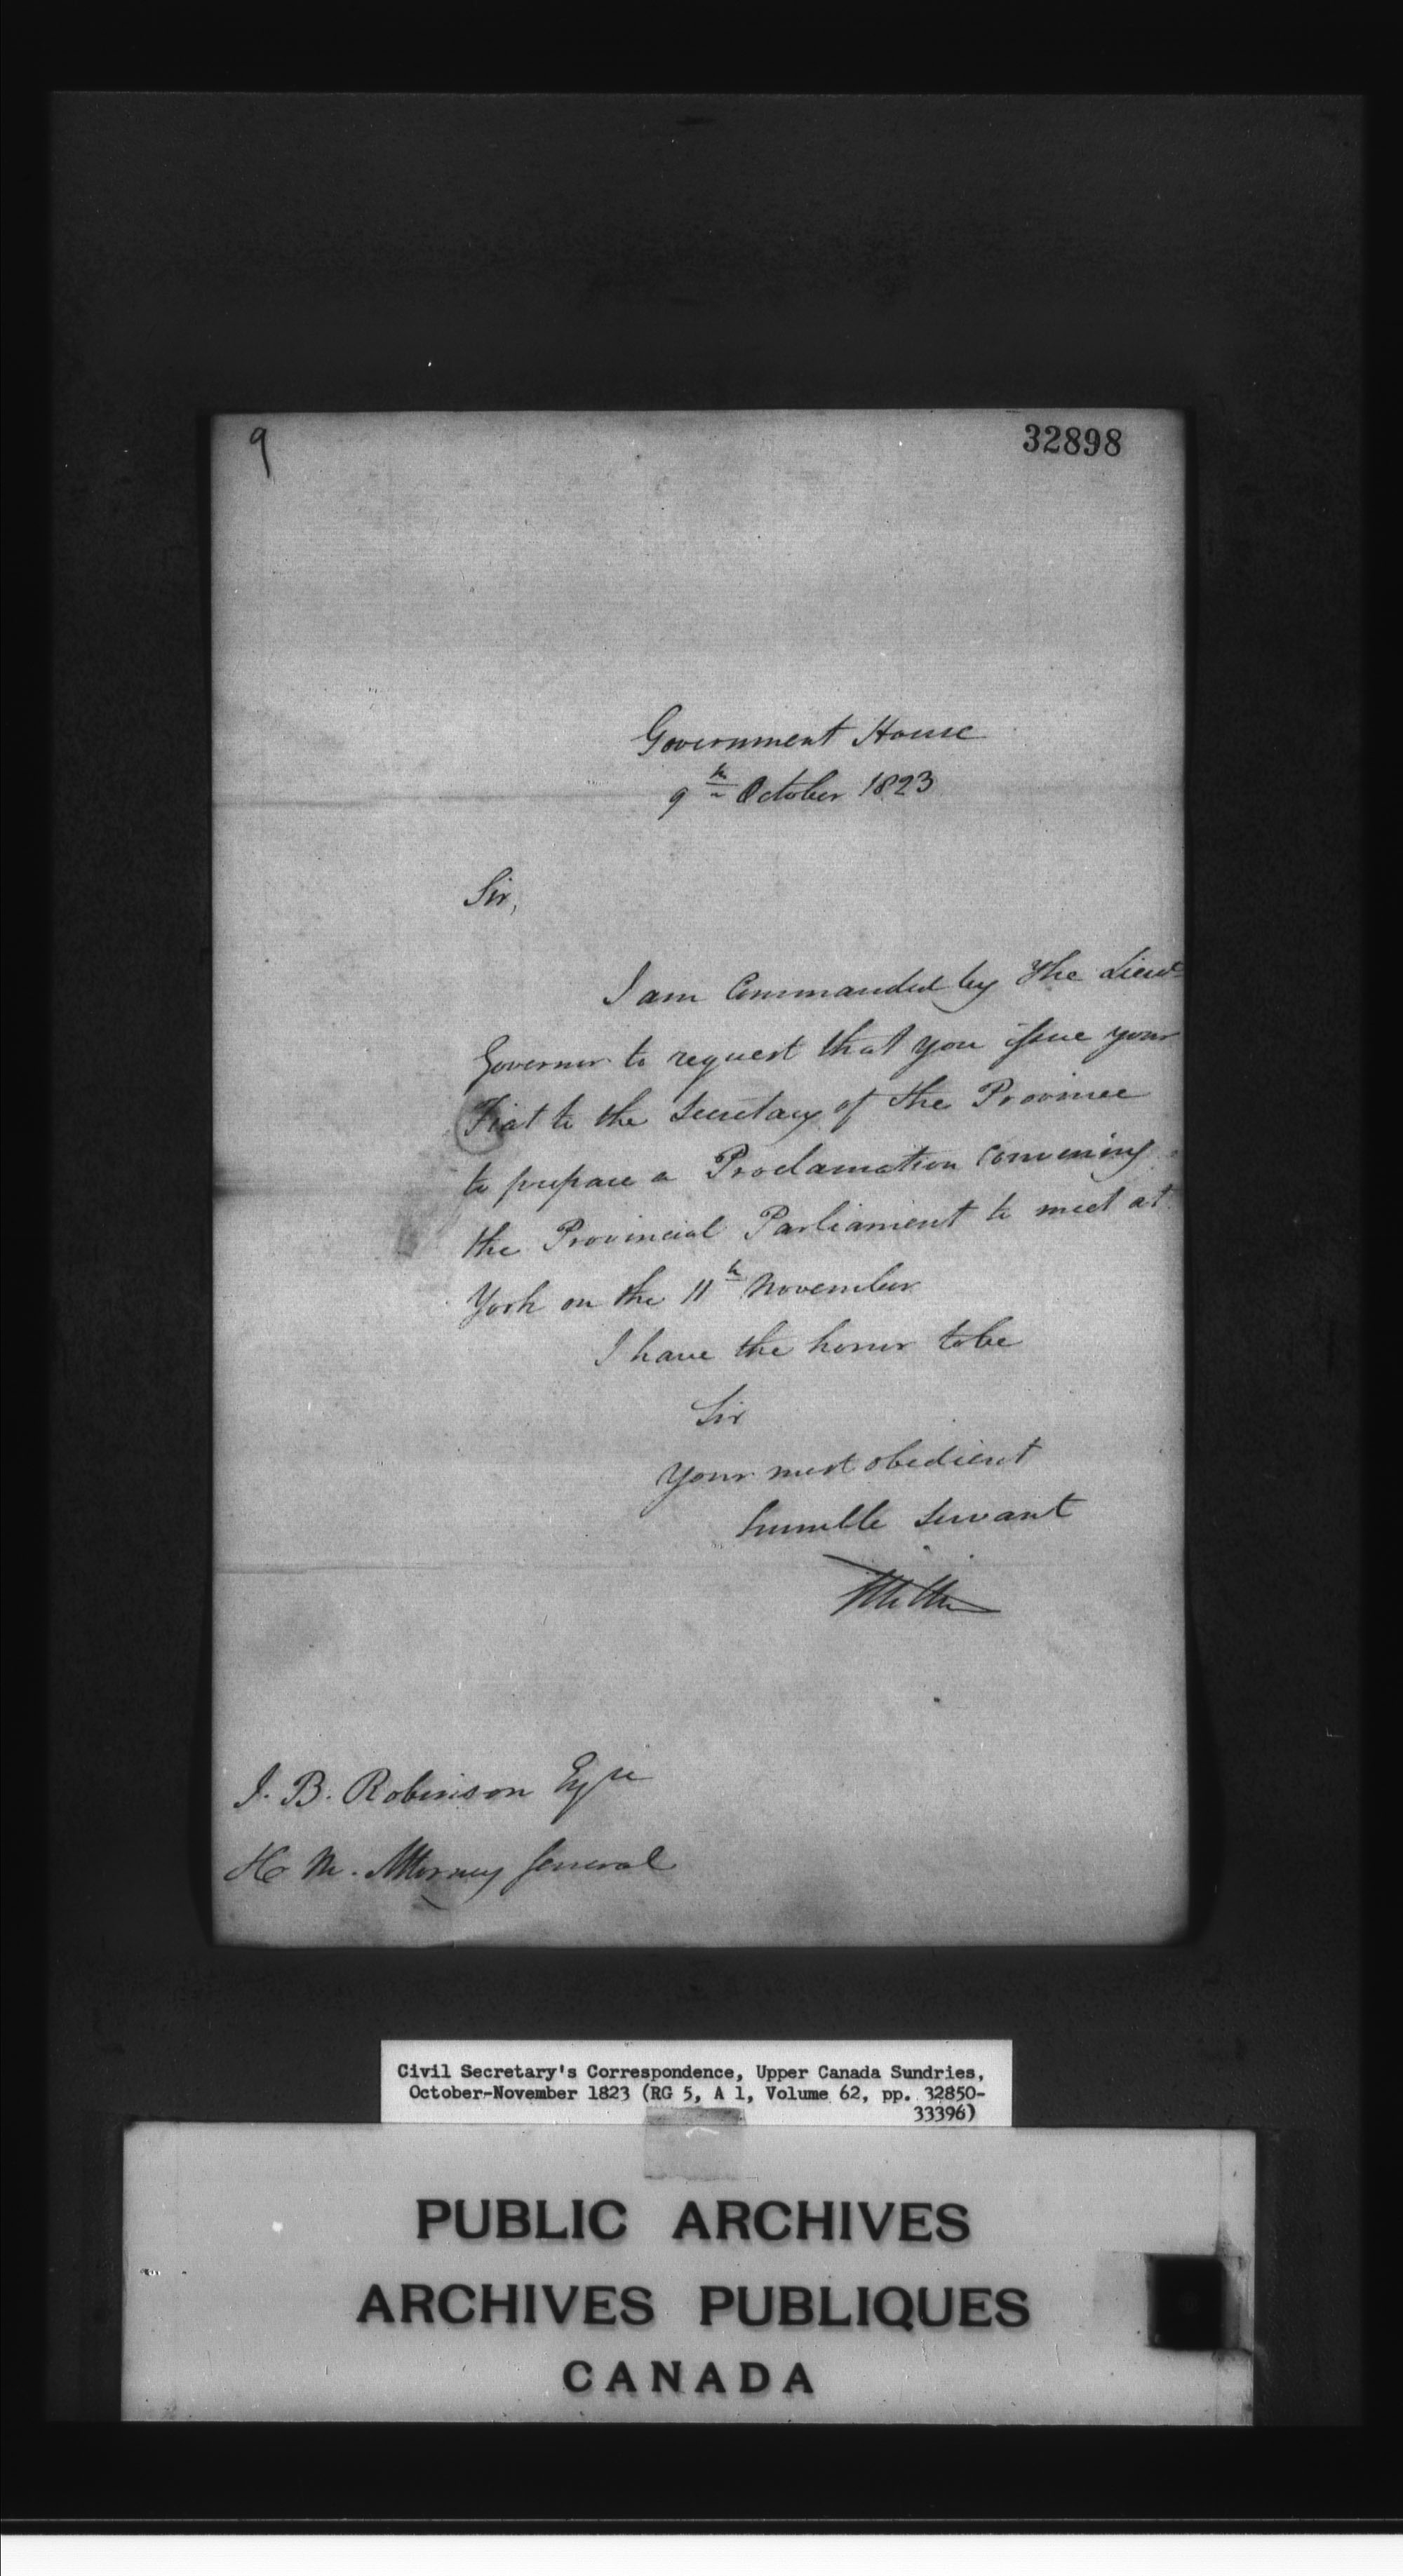 9
32898
Government House
9th October 1823
Sir,
I am Commanded by The Lieut
Governor to request that you issue your
Fiat to the Secretary of the Province
to prepare a Proclamation convening
the Provincial Parliament to meet at
York on the 11th November
I have the honor to be
Sir
Your most obedient
humble servant
J. B. Robinson Esqre
H. M. Attorney General
Civil Secretary's Correspondence, Upper Canada Sundries,
October-November 1823 (RG 5, A 1, Volume 62, pp. 32850-
33396)
PUBLIC ARCHIVES
ARCHIVES PUBLIQUES
CANADA